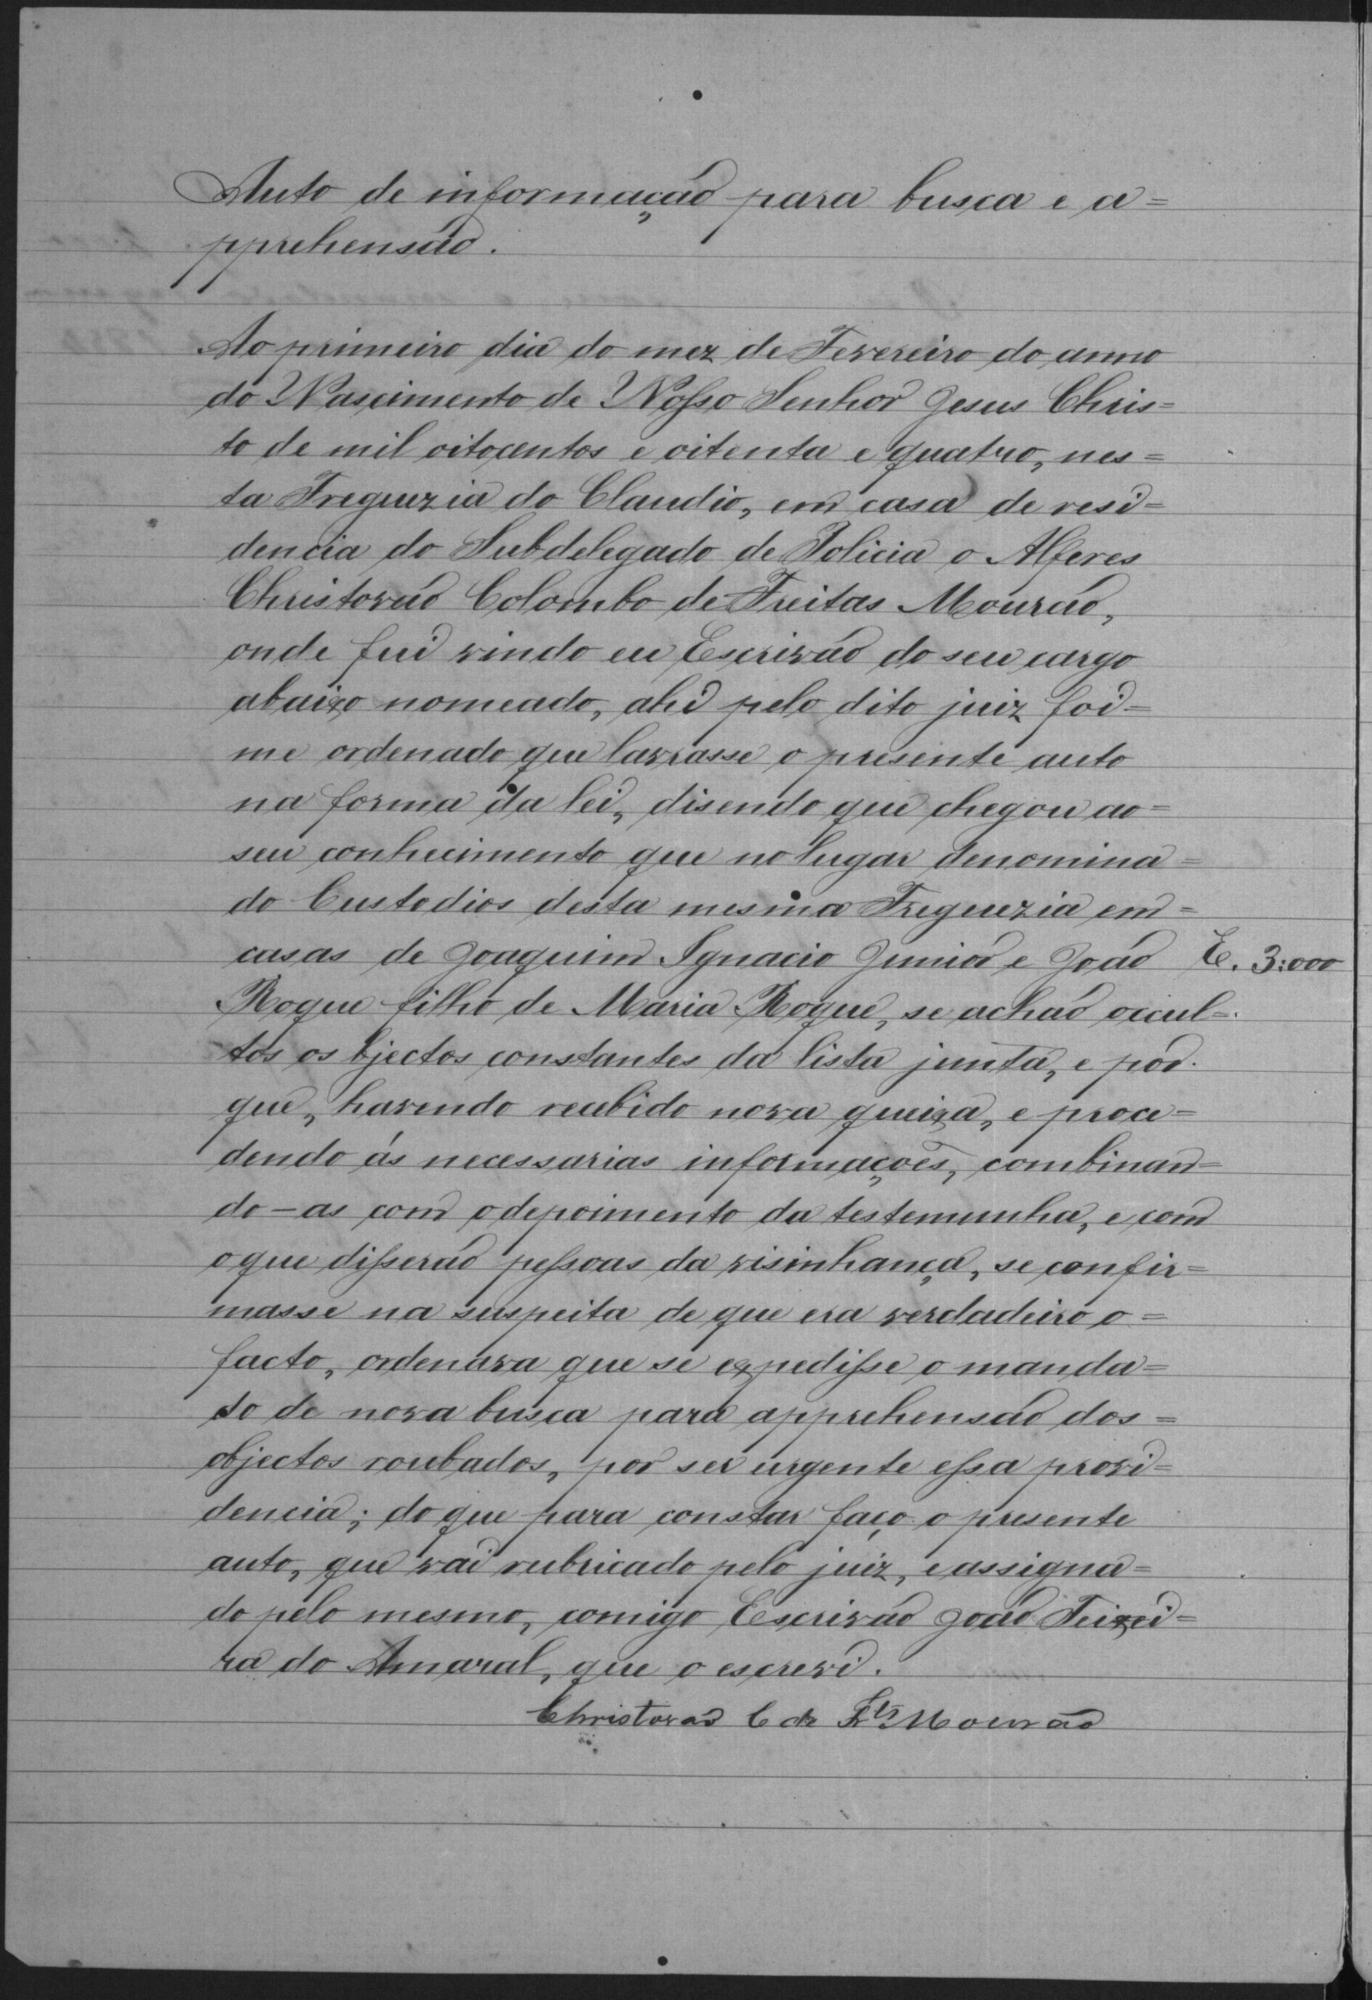 Auto de informação para busca e a=
pprehensão.
Ao primeiro dia do mez de Fevereiro do anno
do Nascimento de Nosso Senhor Jesus Chris=
to de mil oitocentos e oitenta e quatro, nes=
ta Freguezia do Claudio, em casa de resi=
dencia do Subdelegado de Policia o Alferes
Christovão Colombo de Freitas Mourão,
onde fui vindo eu Escrivão do seu cargo
abaixo nomeado, ahi pelo dito juiz foi=
me ordenado que lavrasse o presente auto
na forma da lei, disendo que chegou ao=
seu conhecimento que no lugar denomina=
do Custodios desta mesma Freguezia em=
casas de Joaquim Ignacio Junior e João E. 3:000
Roque filho de Maria Roque, se achão occul=
tos os bjectos constantes da lista junta, e por
que, havendo recebido nova queixa, e proce=
dendo ás necessarias informações, combinan=
do-as com o depoimento da testemunha, e com
o que disserão pessoas da visinhança, se confir=
masse na suspeita de que era verdadeiro o=
facto, ordenava que se expedisse o manda=
do de nova busca para apprehensão dos=
objectos roubados, por ser urgente essa provi=
dencia; do que para constar faço o presente
auto, que vai rubricado pelo juiz, e assigna=
do pelo mesmo, comigo Escrivão João Teixei=
ra do Amaral, que o escrevi.
Christovão C de Ftas Mourão